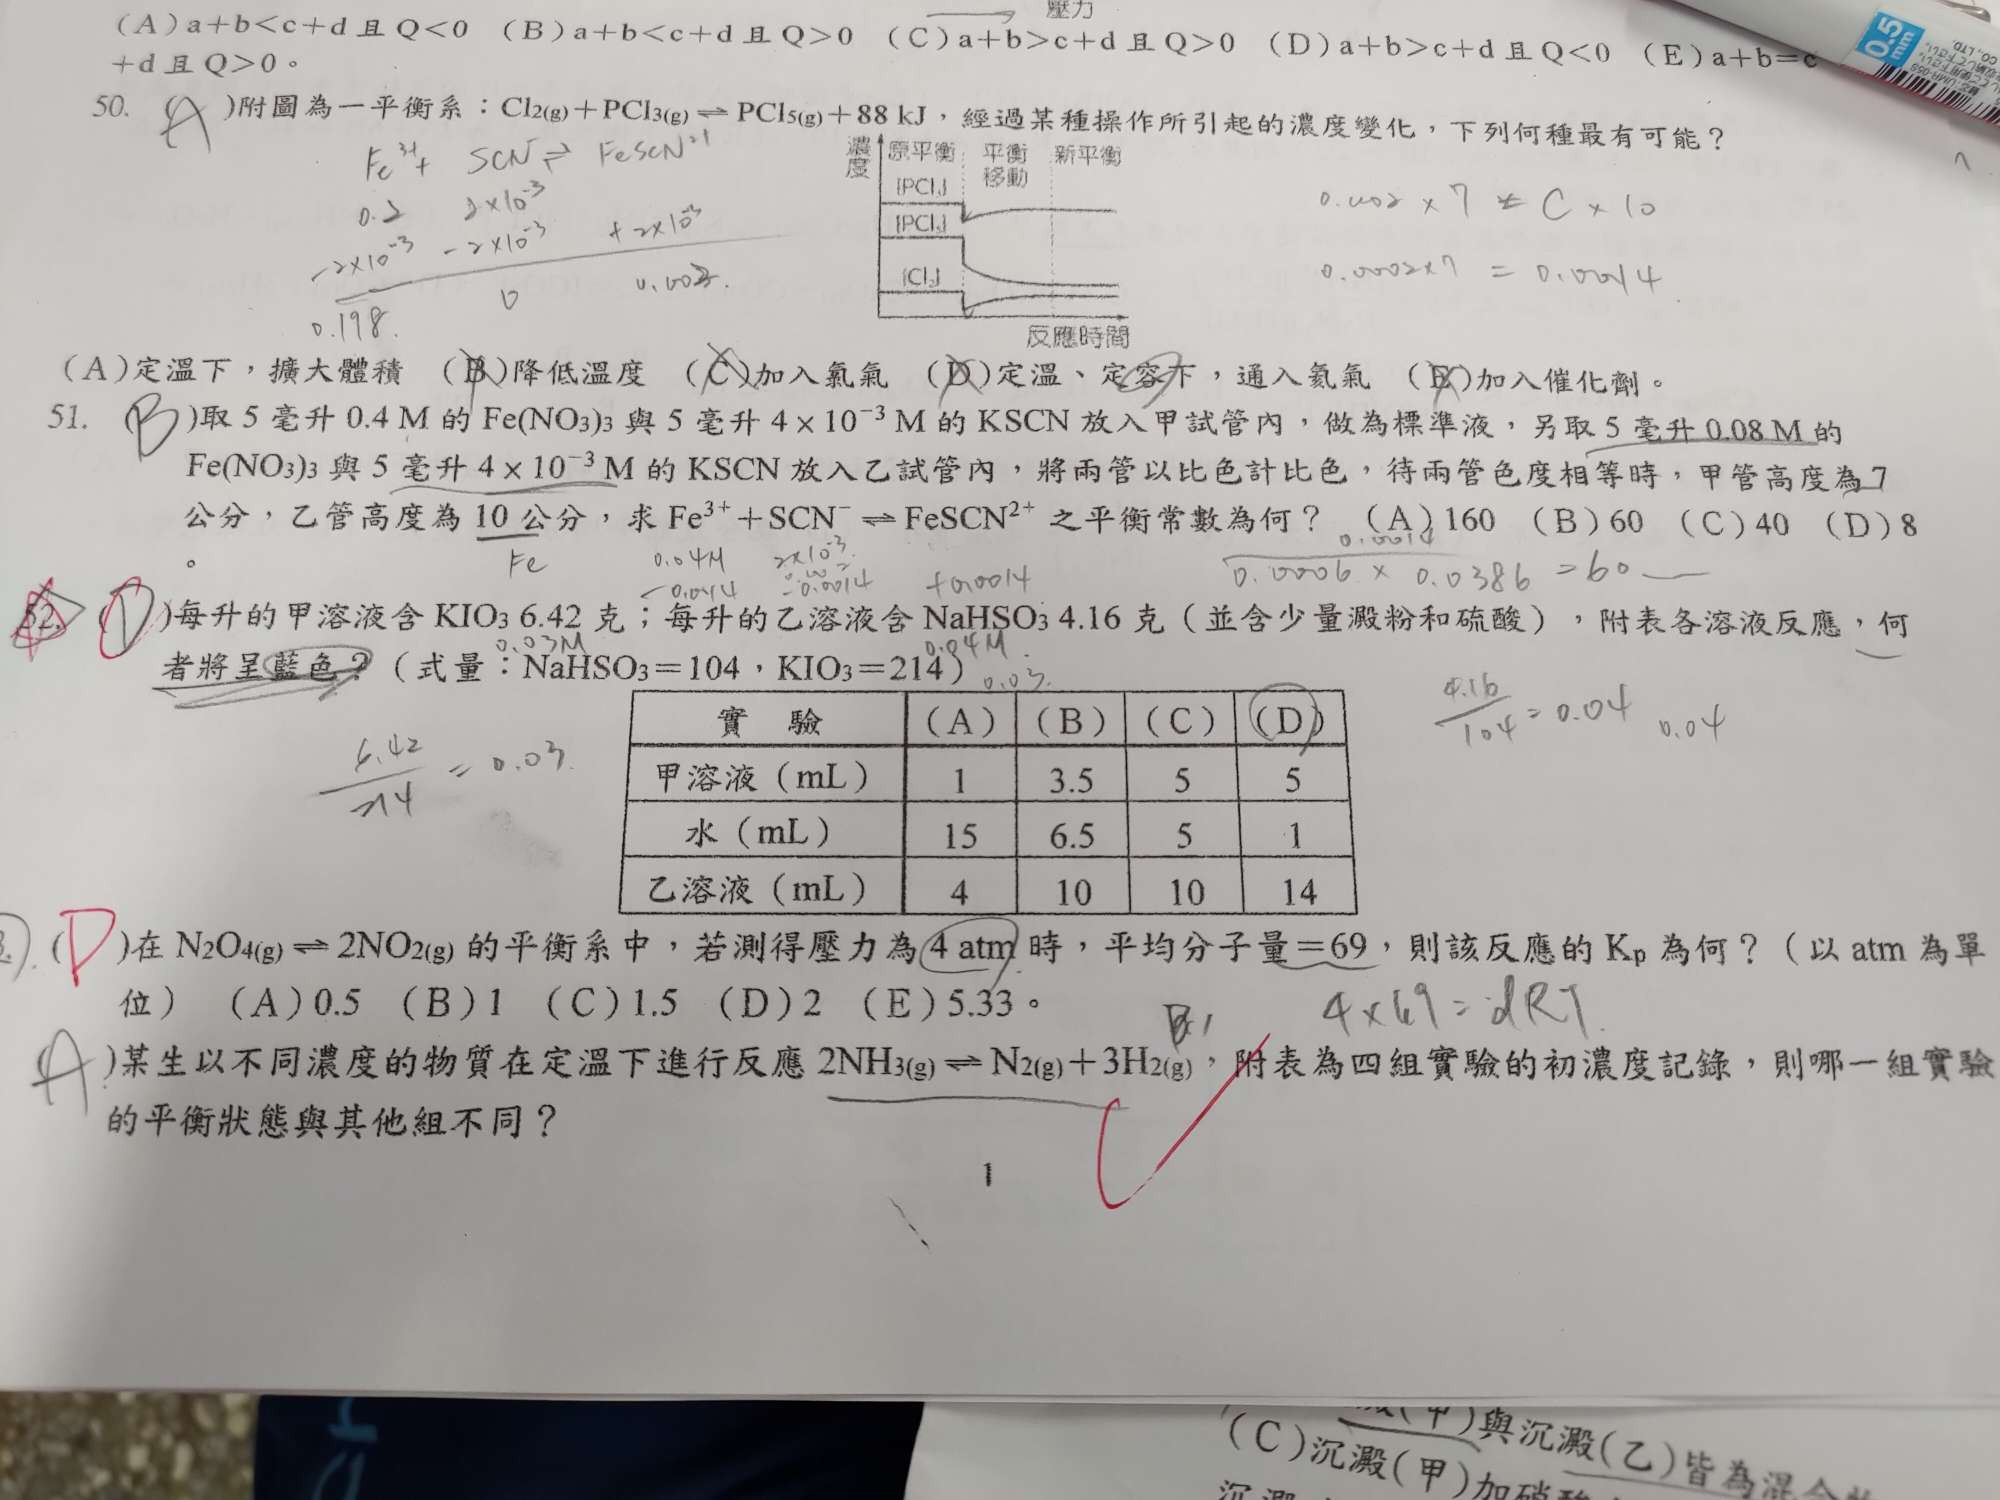 壓力
(A)a+b<c+d 且 Q<0 (B)a+b<c+d 且 Q>0 (C)a+b>c+d 且 Q>0 (D)a+b>c+d 且 Q<0 (E)a+b=c
+d 且 Q>0。
0.5
mm
50. (A)附圖為一平衡系：Cl2(g)+PCl3(g)⇌PCl5(g)+88 kJ，經過某種操作所引起的濃度變化，下列何種最有可能？
Fe3+ + SCN- ⇌ FeSCN2+
0.2 2×10-3
-2×10-3 -2×10-3 +2×10-3
0.198 0 0.002
濃度
原平衡 平衡移動 新平衡
[PCl5]
[PCl3]
[Cl2]
反應時間
0.002×7 = C×10
0.0002×7 = 0.0014
(A)定溫下，擴大體積 (B)降低溫度 (C)加入氯氣 (D)定溫、定容下，通入氦氣 (E)加入催化劑。
51. (B)取 5 毫升 0.4 M 的 Fe(NO3)3 與 5 毫升 4×10−3 M 的 KSCN 放入甲試管內，做為標準液，另取 5 毫升 0.08 M 的
Fe(NO3)3 與 5 毫升 4×10−3 M 的 KSCN 放入乙試管內，將兩管以比色計比色，待兩管色度相等時，甲管高度為 7
公分，乙管高度為 10 公分，求 Fe3++SCN−⇌FeSCN2+ 之平衡常數為何？ (A)160 (B)60 (C)40 (D)8
。
Fe 0.04M 2×10-3
-0.0014 +0.0014
0.0014
0.0006 × 0.0386 = 60
52. (D)每升的甲溶液含 KIO3 6.42 克；每升的乙溶液含 NaHSO3 4.16 克（並含少量澱粉和硫酸），附表各溶液反應，何
0.03M 0.04M
者將呈藍色？（式量：NaHSO3=104，KIO3=214）
0.03
6.42
214 = 0.03
4.16
104 = 0.04 0.04
實 驗 (A) (B) (C) (D)
甲溶液(mL) 1 3.5 5 5
水(mL) 15 6.5 5 1
乙溶液(mL) 4 10 10 14
(D)在 N2O4(g)⇌2NO2(g) 的平衡系中，若測得壓力為 4 atm 時，平均分子量=69，則該反應的 Kp 為何？（以 atm 為單
位） (A)0.5 (B)1 (C)1.5 (D)2 (E)5.33。
4×69 = dRT
(A)某生以不同濃度的物質在定溫下進行反應 2NH3(g)⇌N2(g)+3H2(g)，附表為四組實驗的初濃度記錄，則哪一組實驗
的平衡狀態與其他組不同？
1
(甲)與沉澱(乙)皆為混合
(C)沉澱(甲)加硝酸